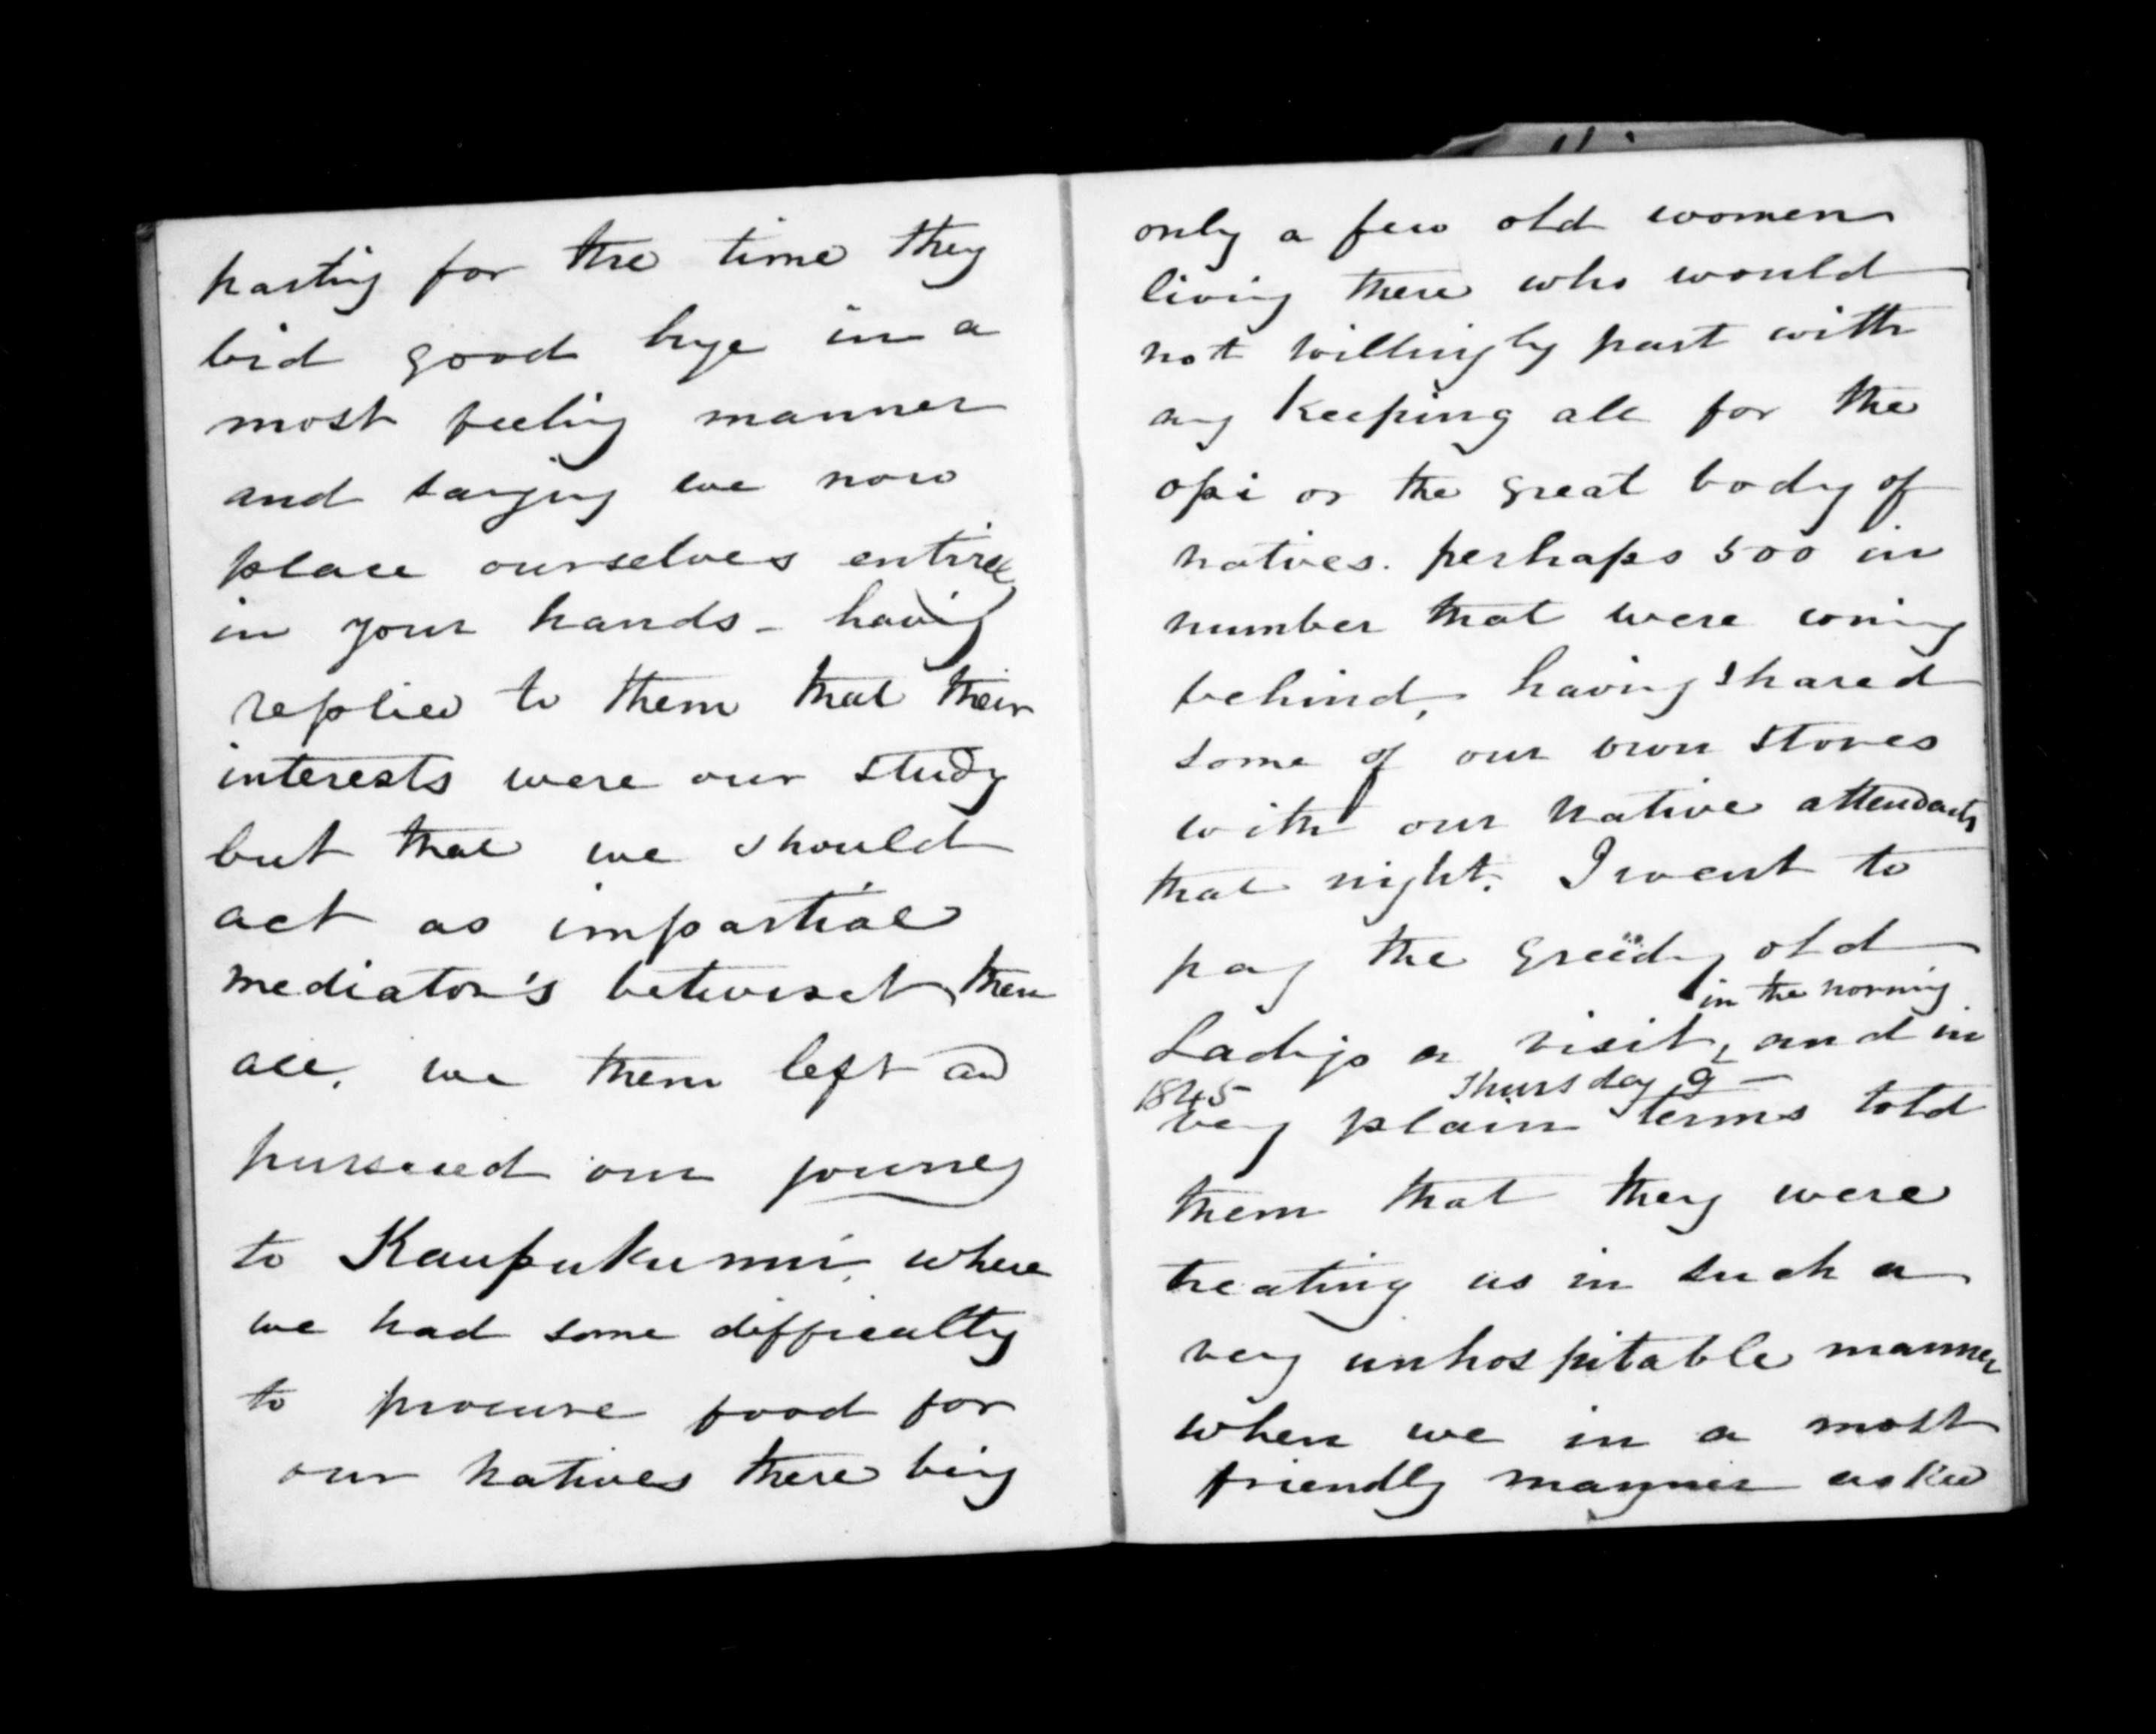 parting for the time they
bid good bye in a
most feeling manner
and saying we now
place ourselves entirel
in your hands - having
replied to them that their
interests were our study
but that we should
act as impartial
mediator's betwixt them
all. we them left and
pursued our jouney
to Kaupukumui, where
we had some difficulty
to procure food for
our natives there being
only a few old women
living there who would
not willingly part with
any keeping all for the
opi or the great body of
natives. perhaps 500 in
number that were coming
behind, having shared
some of our own stores
with our native attendants
that night. I went to
pay the greedy old
in the morning
Ladys a visit, and in
1845 Thursday 9 -
very plain terms told
them that they were
treating us in such a
very unhospitable manner
when we in a most
friendly manner asked